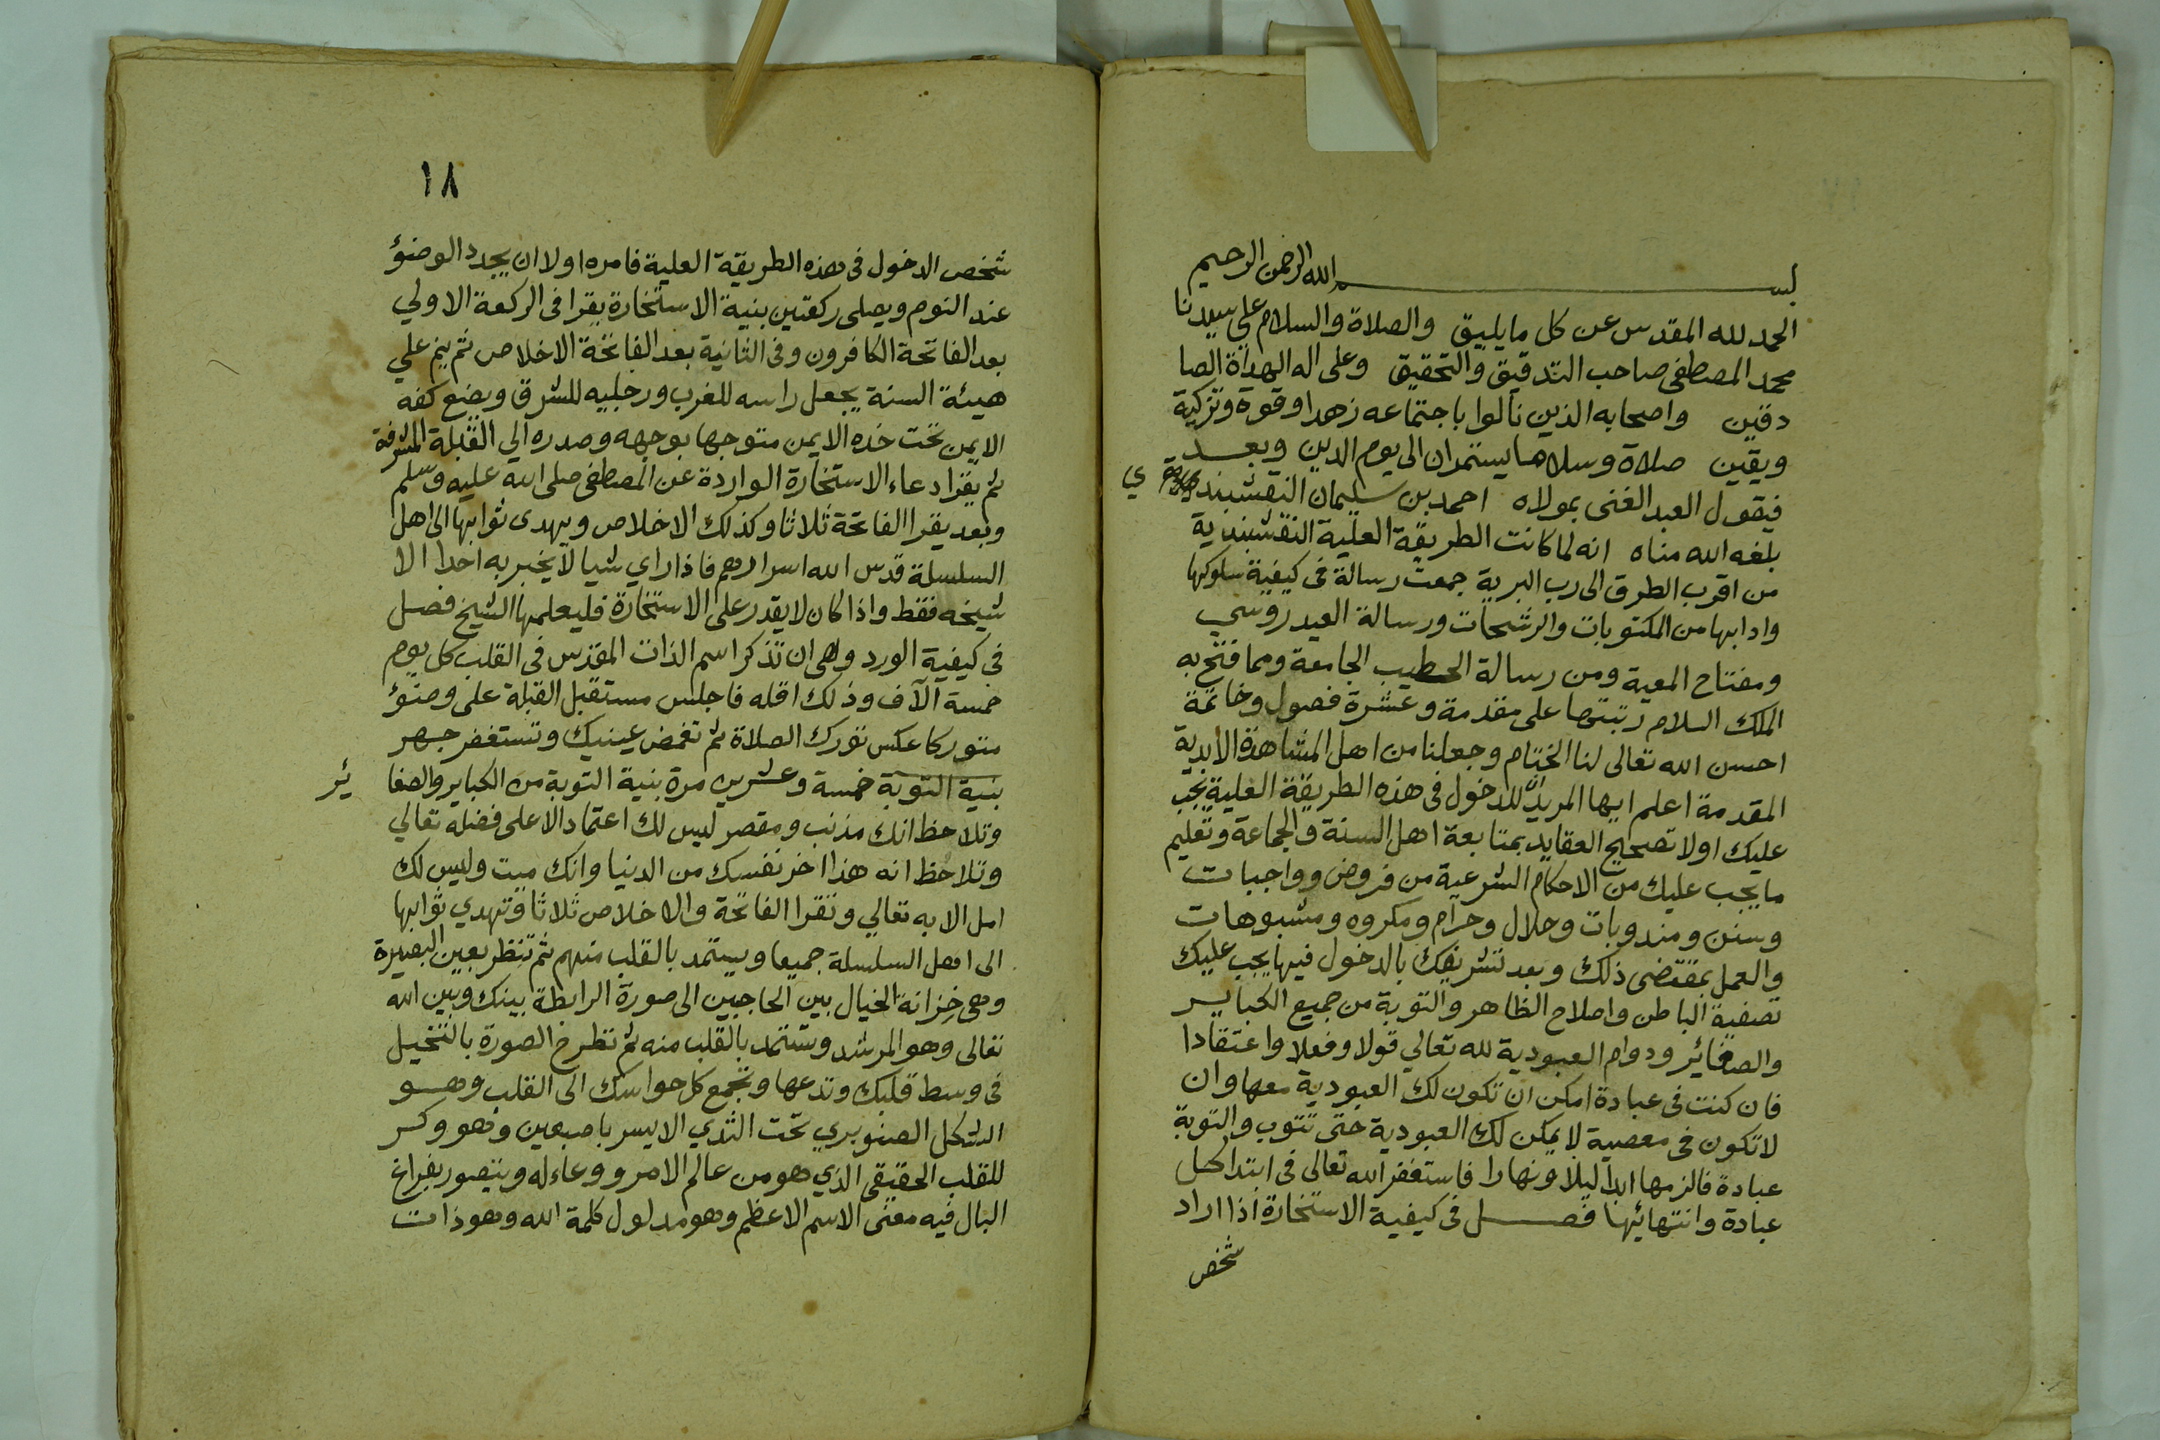 بسم الله الرحمن الرحيم
الحمد لله المقدس عن كل ما يليق والصلاة والسلام علي سيدنا
محمد المصطفى صاحب التدقيق والتحقيق وعلى اله الهداة الصا
دقين واصحابه الذين نالوا باجتماعه زهدا وقوة وتزكية
ويقين صلاة وسلاما يستمران الى يوم الدين وبعد
فيقول العبد الغنى بمولاه احمد بن سليمان النقشبندي
بلغه الله مناه انه لما كانت الطريقة العلية النقشبندية
من اقرب الطرق الى رب البرية جمعت رسالة فى كيفية سلوكها
وادابها من المكتوبات والرشحات ورسالة العيدروسي
ومفتاح المعية ومن رسالة الخطيب الجامعة ومما فتح به
الملك السلام رتبتها على مقدمة وعشرة فصول وخاتمة
احسن الله تعالى لنا الختام وجعلنا من اهل المشاهدة الابدية
المقدمة اعلم ايها المريد للدخول فى هذه الطريقة العلية يجب
عليك اولا تصحيح العقايد بمتابعة اهل السنة والجماعة وتعليم
ما يجب عليك من الاحكام الشرعية من فروض وواجبات
وسنن ومندوبات وحلال وحرام ومكروه ومشبوهات
والعمل بمقتضى ذلك وبعد تشرفك بالدخول فيها يجب عليك
تصفية الباطن واصلاح الظاهر والتوبة من جميع الكباير
والصغائر ودوام العبودية لله تعالي قولا وفعلا واعتقادا
فان كنت فى عبادة امكن ان تكون لك العبودية معها وان
لا تكون فى معصية لا يمكن لك العبودية حتى تتوب والتوبة
عبادة فالزمها ابدا ليلا ونهارا فاستغفر الله تعالى فى ابتدا كل
عبادة وانتهائها فصل فى كيفية الاستخارة اذا اراد
شخص
١٨
شخص الدخول فى هذه الطريقة العلية فامره اولا ان يجدد الوضؤ
عند النوم ويصلى ركعتين بنية الاستخارة يقرا فى الركعة الاولي
بعد الفاتحة الكافرون وفى الثانية بعد الفاتحة الاخلاص ثم ينم علي
هيئة السنة يجعل راسه للغرب ورجليه للشرق ويضع كفه
الايمن تحت خده الايمن متوجها بوجهه وصدره الي القبلة المشرفة
ثم يقرا دعاء الاستخارة الواردة عن المصطفى صلى الله عليه وسلم
وبعد يقرا الفاتحة ثلاثا وكذلك الاخلاص ويهدى ثوابها الى اهل
السلسلة قدس الله اسرارهم فاذا راي شيا لا يخبر به احدا الا
شيخه فقط واذا كان لا يقدر على الاستخارة فليعلمها الشيخ فصل
فى كيفية الورد وهى ان تذكر اسم الذات المقدس فى القلب كل يوم
خمسة آلاف وذلك اقله فاجلس مستقبل القبلة على وضؤ
متوركا عكس تورك الصلاة ثم تغمض عينيك وتستغفر جهر
بنية التوبة خمسة وعشرين مرة بنية التوبة من الكباير والصغا
ئر
وتلاحظ انك مذنب ومقصر ليس لك اعتماد الا على فضله تعالي
وتلاحظ انه هذا اخر نفسك من الدنيا وانك ميت وليس لك
امل الا به تعالي وتقرا الفاتحة والاخلاص ثلاثا وتهدي ثوابها
الى اهل السلسلة جميعا ويستمد بالقلب منهم ثم تنظر بعين البصيرة
وهى خزانة الخيال بين الحاجبين الى صورة الرابطة بينك وبين الله
تعالى وهو المرشد وستمد بالقلب منه ثم تطرح الصورة بالتخيل
فى وسط قلبك وتدعها وتجمع كل حواسك الى القلب وهو
الشكل الصنوبري تحت الثدي الايسر باصبعين وهو وكر
للقلب الحقيقى الذي هو من عالم الامر ووعاء له ويتصور بفراغ
البال فيه معنى الاسم الاعظم وهو مدلول كلمة الله وهو ذات